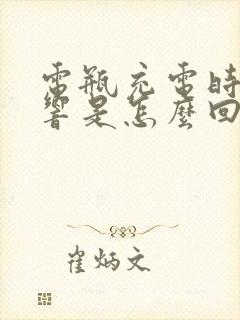 電瓶充電時
響是怎麼回
崔炳文